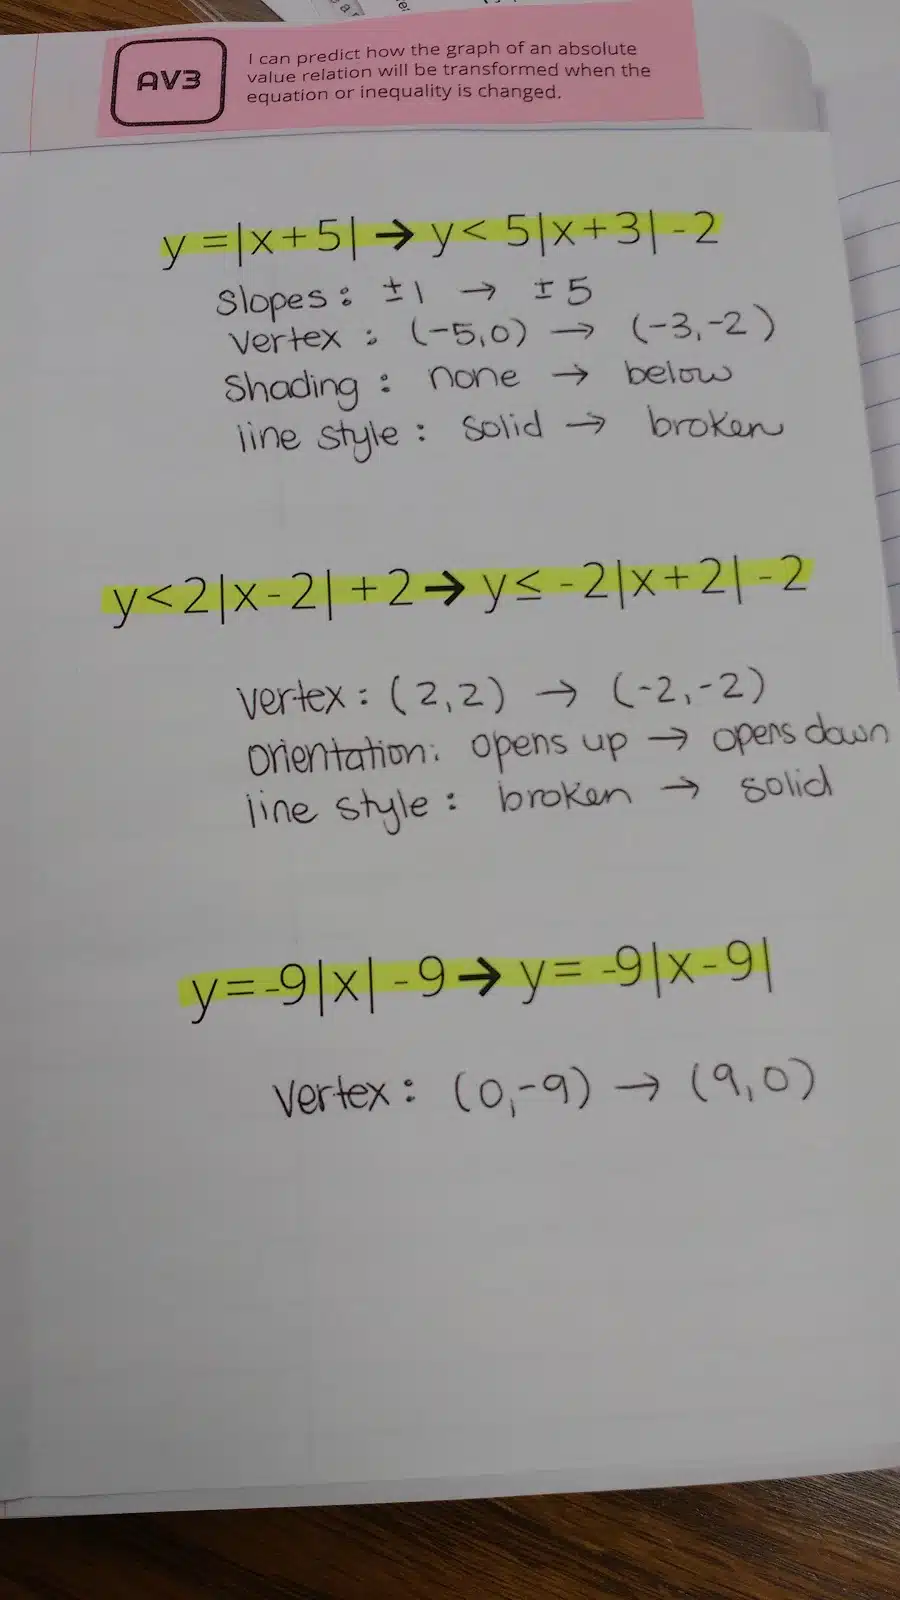 AV3
I can predict how the graph of an absolute
value relation will be transformed when the
equation or inequality is changed.
y=|x+5|→y< 5|x+3|-2
Slopes: ±1 → ±5
vertex: (-5,0) → (-3,-2)
Shading: none → below
line style: solid → broken
y<2|x-2|+2→y≤ -2|x+2|-2
vertex: (2,2) → (-2,-2)
orientation: opens up → opens down
line style: broken → solid
y=-9|x|-9→y= -9|x-9|
vertex: (0,-9) → (9,0)